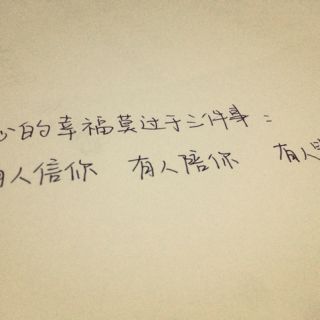 的幸福莫过于三件事:
有人信你 有人陪你 有人